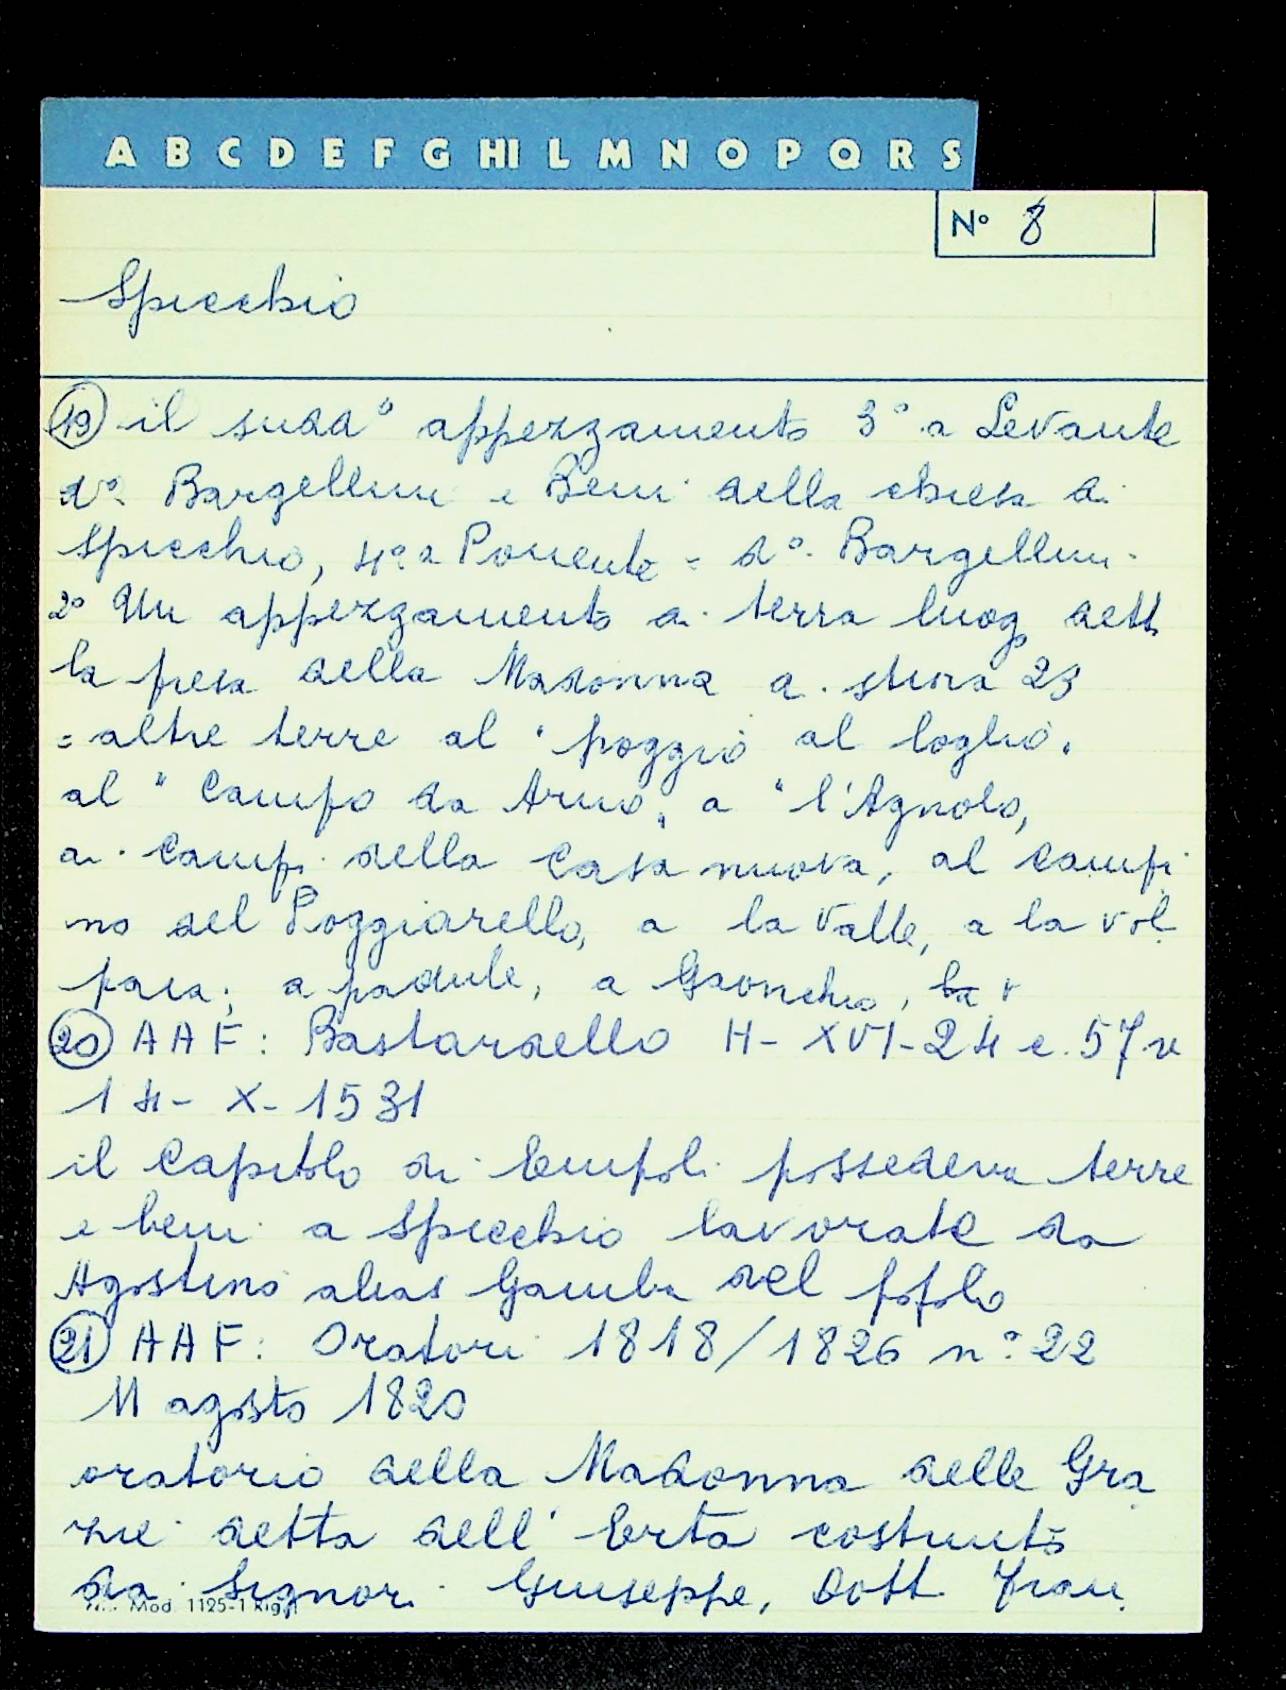 A B C D E F G HI L M N O P Q R S
N° 8
Spicchio
19 il sudd° appezzamento 3° a Levante
d° Bargellini e Beni della chiesa di
Spicchio, 4° a Ponente = d° Bargellini
2° Un appezzamento di terra luog dett
la presa della Madonna a stiora 23
= altre terre al "poggio al loglio"
al "Campo da Arno", a "l'Agnolo,
ai Campi della Casa nuova, al campi
no del Poggiarello, a la Valle, a la vol
paia; a padule, a Gronchio, la v
20 AAF: Bastardello H-XVI-24 c. 57v
14-X-1531
il Capitolo di Empoli possedeva terre
e beni a Spicchio lavorate da
Agostino alias Gamba del popolo
21 AAF: Oratori 1818/1826 n° 22
11 agosto 1820
oratorio della Madonna delle Gra
zie detta dell'Erta costruito
dai Signori Giuseppe, Dott. Fran
Mod. 1125-1